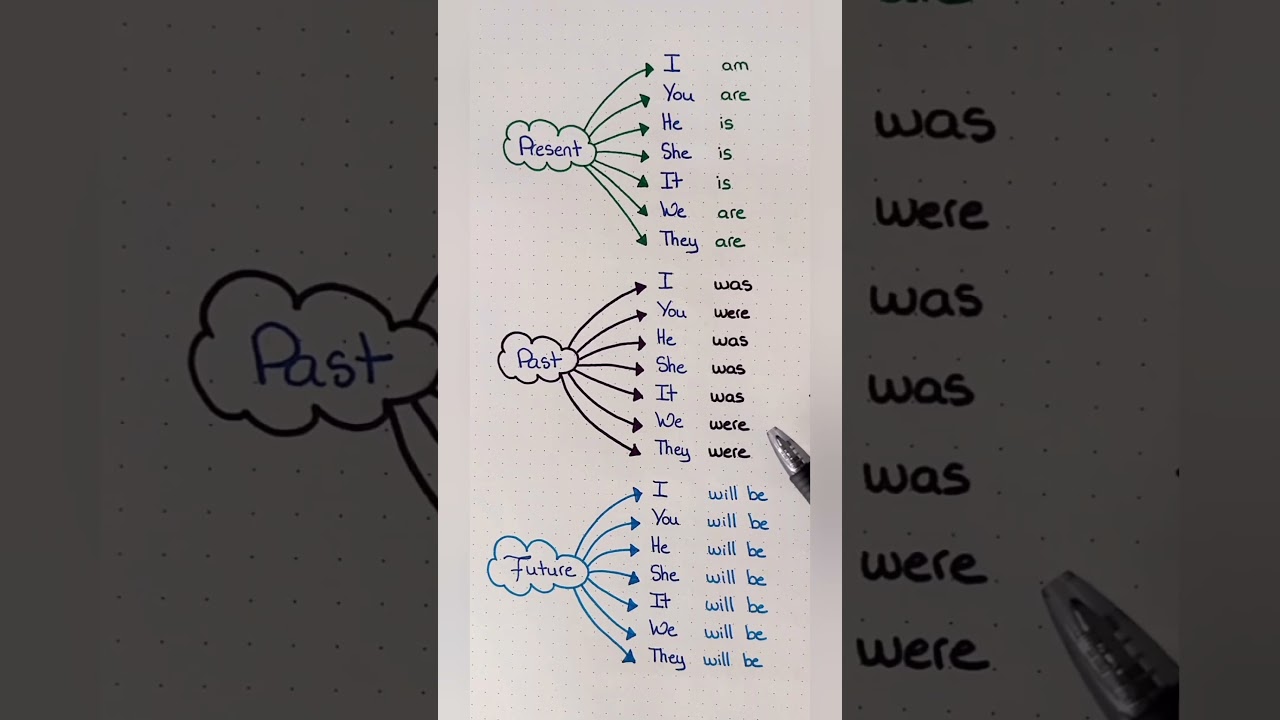 Present
I am
You are
He is
She is
It is
We are
They are
Past
I was
You were
He was
She was
It was
We were
They were
Future
I will be
You will be
He will be
She will be
It will be
We will be
They will be
Past
was
were
was
was
was
were
were